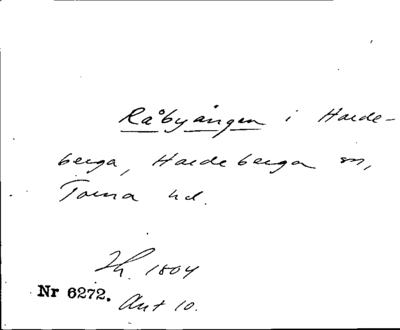 Råbyängen i Harde-
berga, Hardeberga sn,
Torna hd.
Th. 1804
Nr 6272. Akt 10.